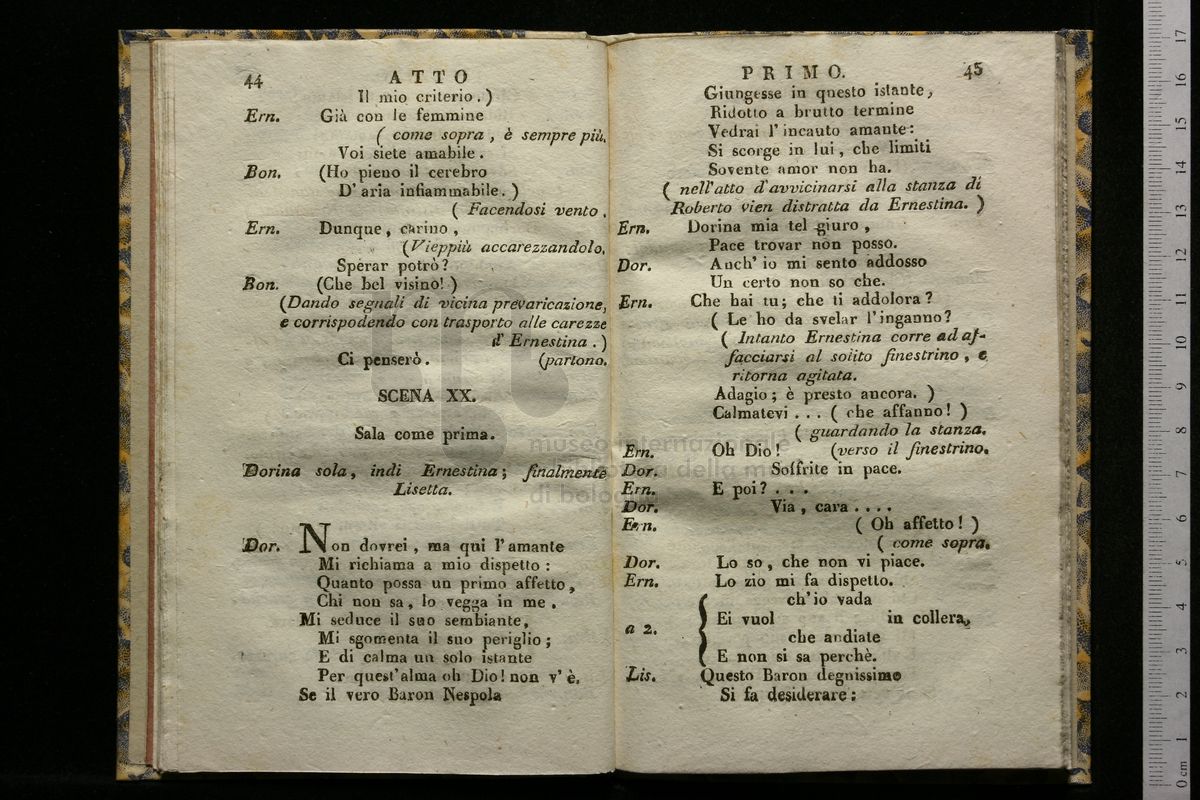 44 ATTO
Il mio criterio.)
Ern. Già con le femmine
( come sopra, è sempre più.
Voi siete amabile.
Bon. (Ho pieno il cerebro
D'aria infiammabile.)
( Facendosi vento.
Ern. Dunque, carino,
(Vieppiù accarezzandolo.
Sperar potrò?
Bon. (Che bel visino!)
(Dando segnali di vicina prevaricazione,
e corrispodendo con trasporto alle carezze
d'Ernestina.)
Ci penserò. (partono.
SCENA XX.
Sala come prima.
Dorina sola, indi Ernestina; finalmente
Lisetta.
Dor. Non dovrei, ma qui l'amante
Mi richiama a mio dispetto:
Quanto possa un primo affetto,
Chi non sa, lo vegga in me.
Mi seduce il suo sembiante,
Mi sgomenta il suo periglio;
E di calma un solo istante
Per quest'alma oh Dio! non v'è.
Se il vero Baron Nespola
PRIMO. 45
Giungesse in questo istante,
Ridotto a brutto termine
Vedrai l'incauto amante:
Si scorge in lui, che limiti
Sovente amor non ha.
( nell'atto d'avvicinarsi alla stanza di
Roberto vien distratta da Ernestina. )
Ern. Dorina mia tel giuro,
Pace trovar non posso.
Dor. Anch'io mi sento addosso
Un certo non so che.
Ern. Che hai tu; che ti addolora?
( Le ho da svelar l'inganno?
( Intanto Ernestina corre ad af-
facciarsi al solito finestrino, e
ritorna agitata.
Adagio; è presto ancora. )
Calmatevi . . . ( che affanno! )
( guardando la stanza.
Ern. Oh Dio! (verso il finestrino.
Dor. Soffrite in pace.
Ern. E poi? . . .
Dor. Via, cara . . . .
Ern. ( Oh affetto! )
( come sopra.
Dor. Lo so, che non vi piace.
Ern. Lo zio mi fa dispetto.
ch'io vada
a 2. Ei vuol in collera,
che andiate
E non si sa perchè.
Lis. Questo Baron degnissimo
Si fa desiderare:
museo internazionale
e biblioteca della musica
di bologna
0 cm 1 2 3 4 5 6 7 8 9 10 11 12 13 14 15 16 17